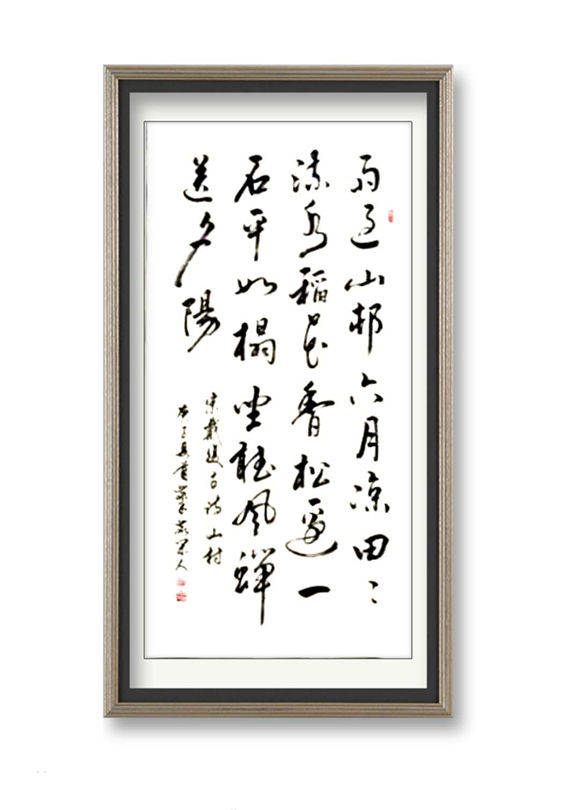 雨過山邨六月涼田〻
流水稻花香松邊一
石平如榻坐聽風蟬
送夕陽
宋戴復古詩山村